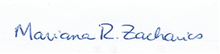 Mariana R. Zacharias